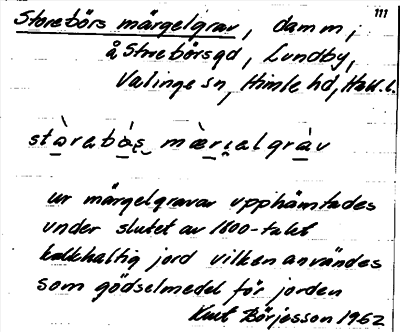 111
Storebörs märgelgrav, damm,
å Storebörsgd, Lundby,
Valinge sn, Himle hd, Hall. l.
stòrebås mæ̀rjalgràv
ur märgelgravar upphämtades
under slutet av 1800-talet
kalkhaltig jord vilken användes
som gödselmedel för jorden
Knut Börjesson 1962